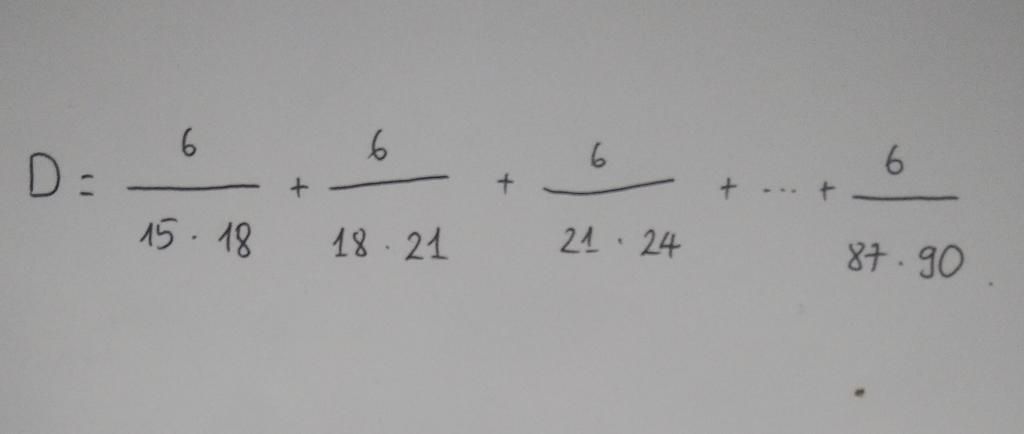 D = 6/(15 · 18) + 6/(18 · 21) + 6/(21 · 24) + ... + 6/(87 · 90)